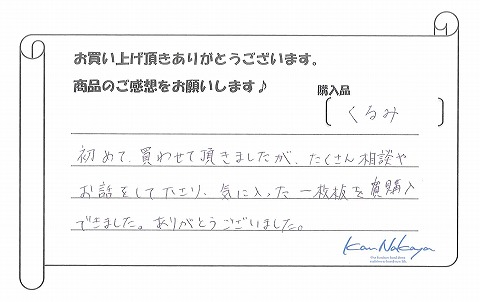 お買い上げ頂きありがとうございます。
商品のご感想をお願いします♪
購入品
[くるみ]
初めて、買わせて頂きましたが、たくさん相談や
お話をして下さり、気に入った一枚板を購入
できました。ありがとうございました。
KanNakaya